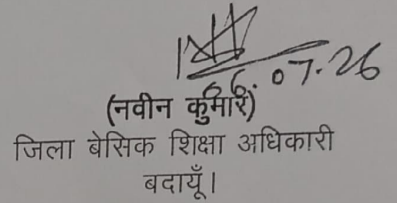 06.07.26
(नवीन कुमार)
जिला बेसिक शिक्षा अधिकारी
बदायूँ।